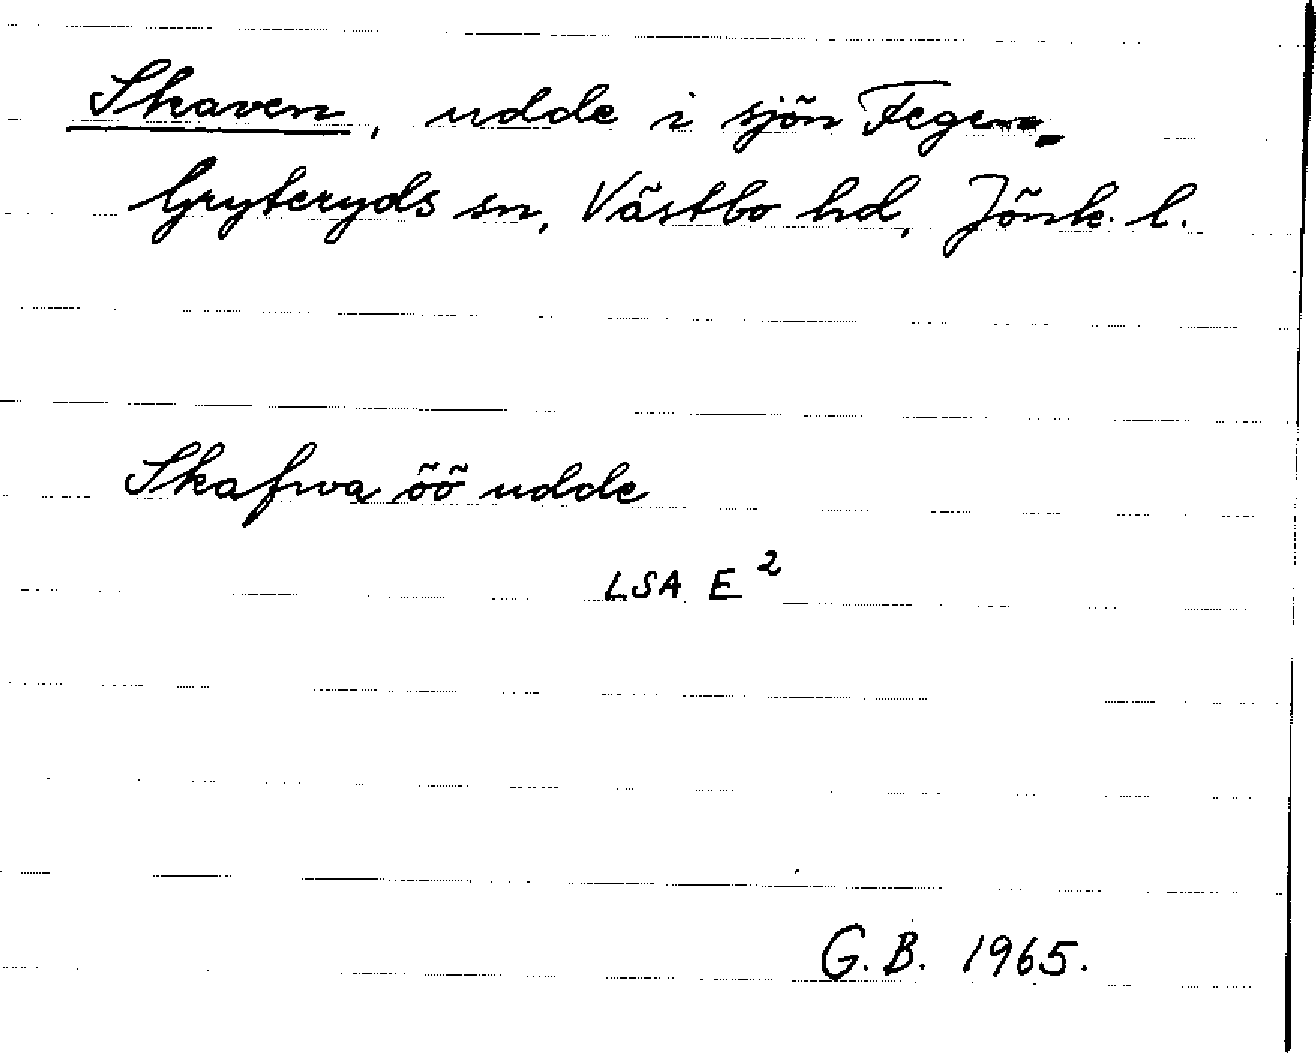 Skaven, udde i sjön Fegen.
Gryteryds sn, Västbo hd, Jönk. l.
Skafwa öö udde
LSA E 2
G.B. 1965.